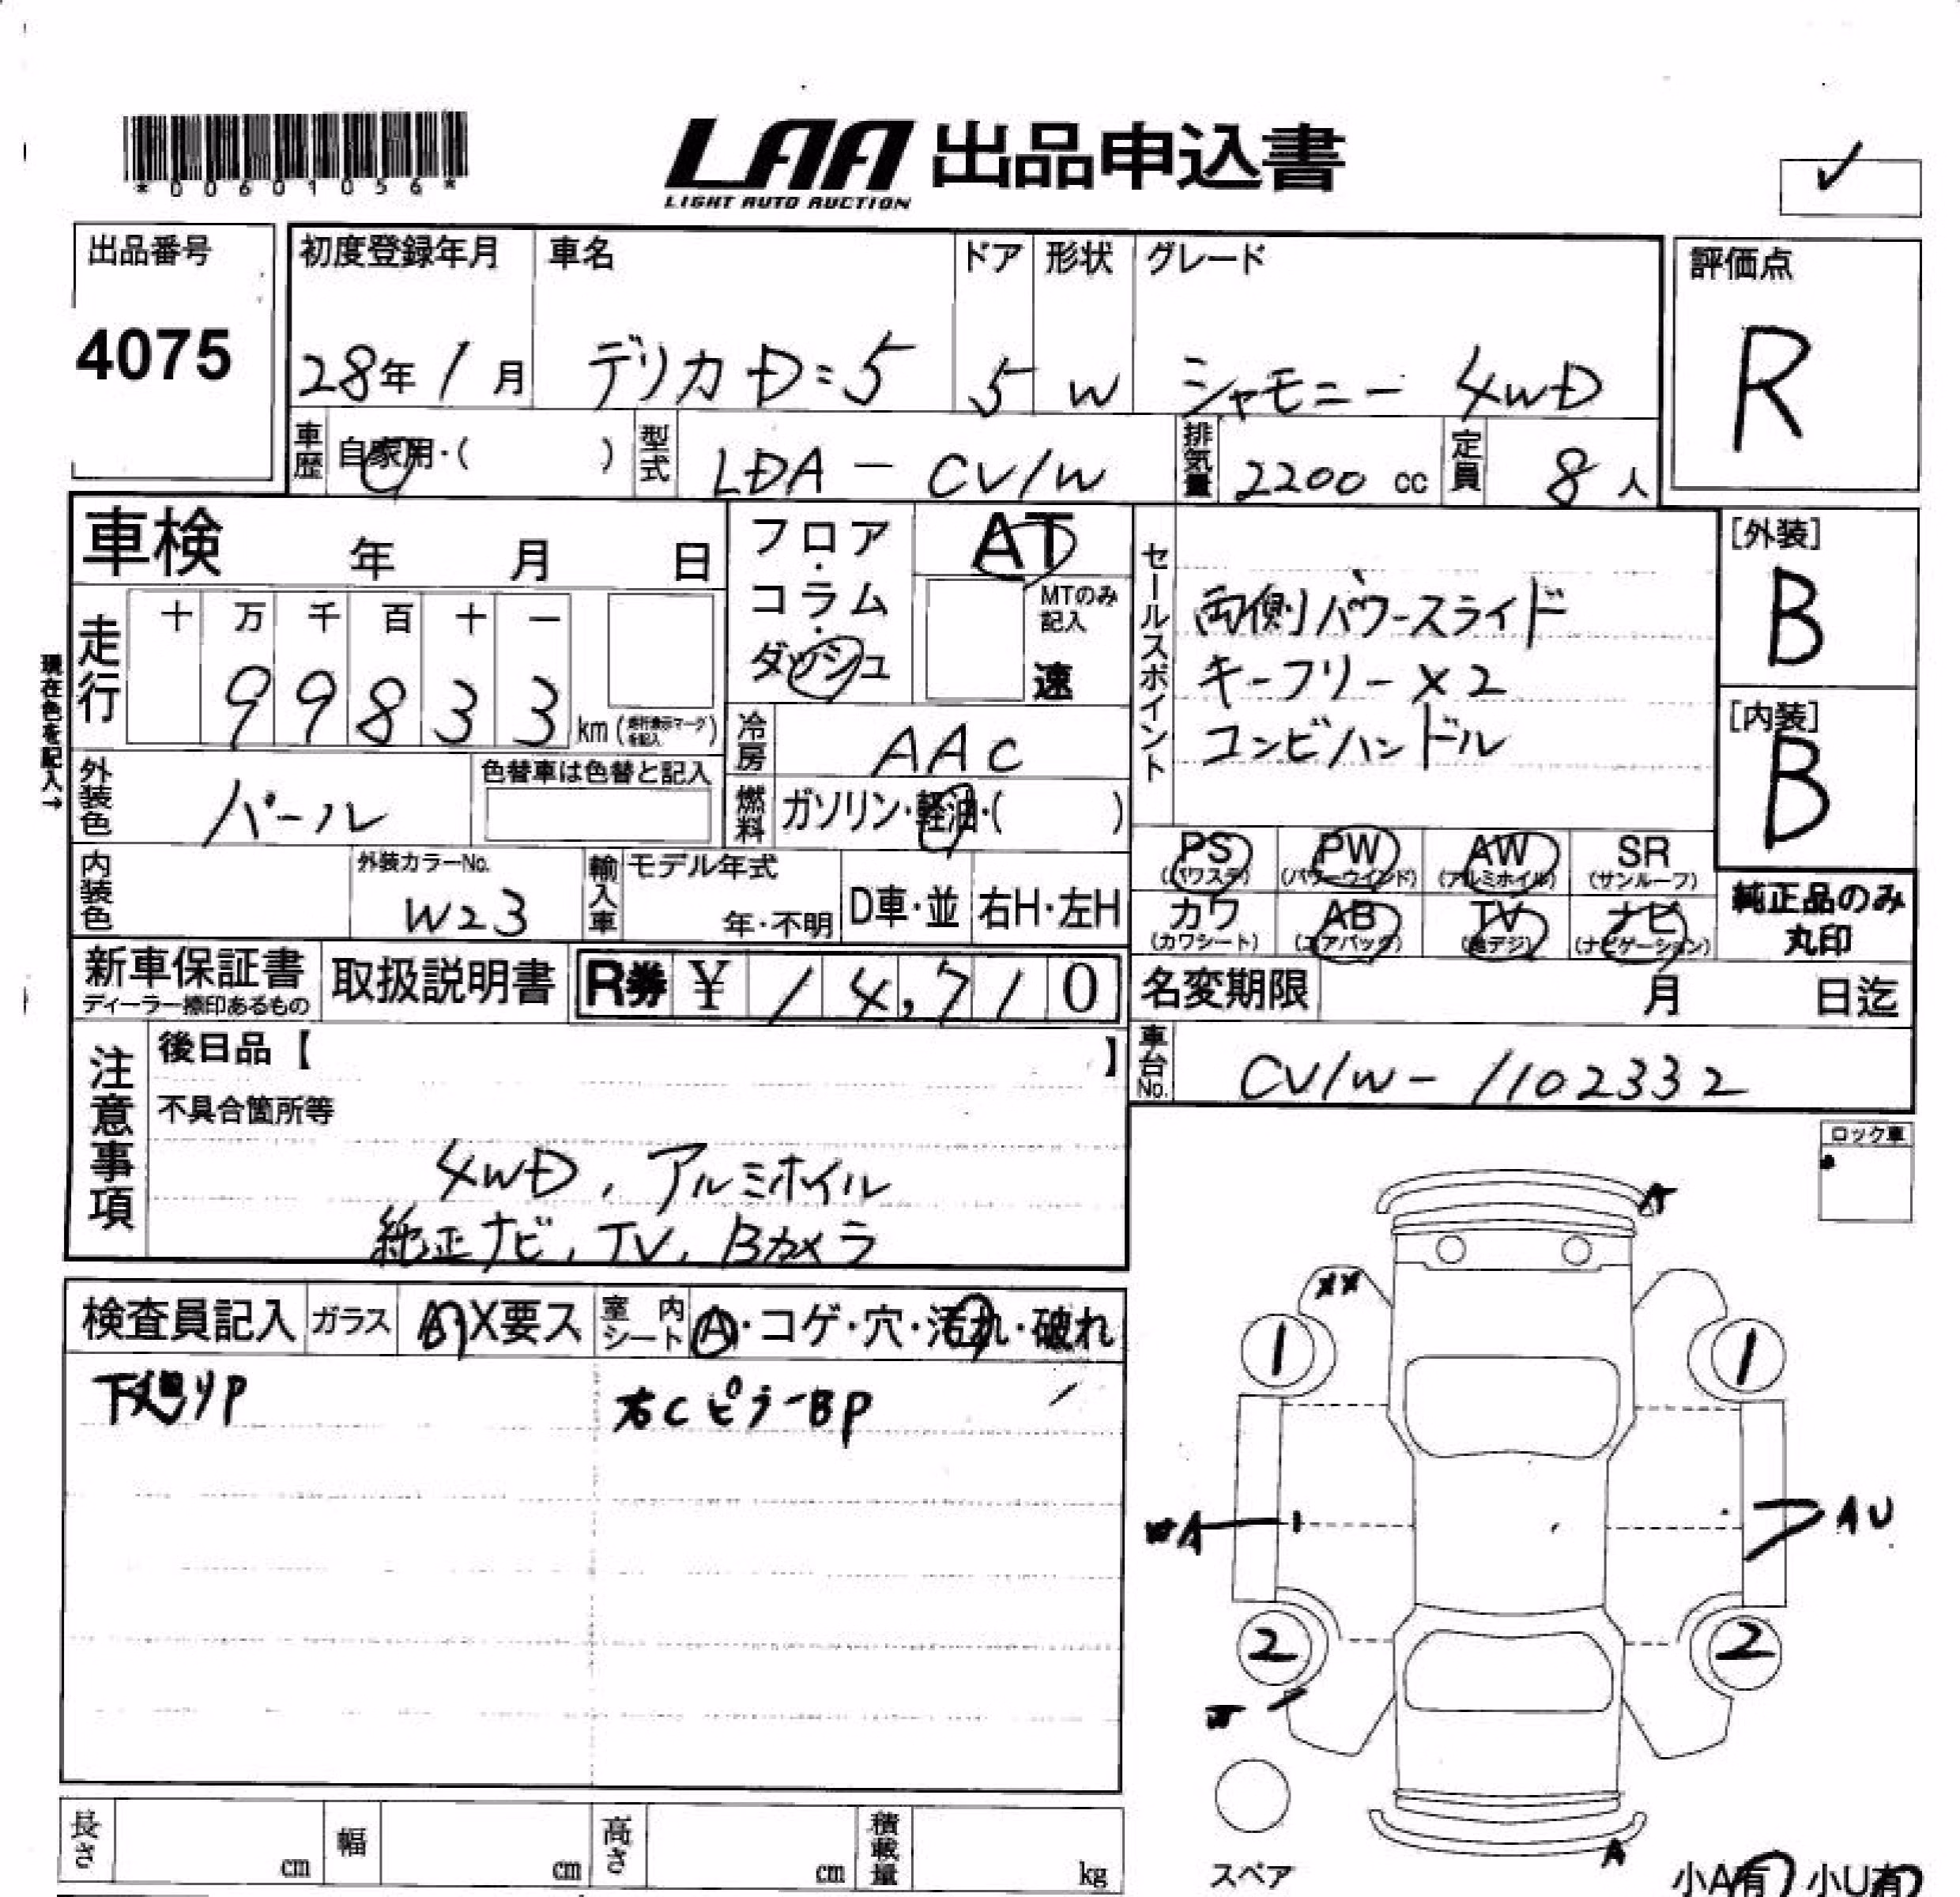 *00601056*
LAA 出品申込書
LIGHT AUTO AUCTION
✓
出品番号
4075
初度登録年月 車名 ドア 形状 グレード
28年 1月 デリカD:5 5 W シャモニー 4WD
評価点
R
車歴 自家用・( ) 型式 LDA-CV1W 排気量 2200 cc 定員 8人
車検 年 月 日
フロア・コラム・ダッシュ
AT
MTのみ記入
速
セールスポイント
両側パワースライド
キーフリー×2
コンビハンドル
[外装]
B
[内装]
B
現在色を記入→
走行 十 万 千 百 十 一
99833 km(走行表示マークを記入)
冷房 AAC
外装色 パール 色替車は色替と記入
燃料 ガソリン・軽油・( )
PS (パワステ) PW (パワーウインド) AW (アルミホイル) SR (サンルーフ)
カワ (カワシート) AB (エアバック) TV (地デジ) ナビ (ナビゲーション)
純正品のみ
丸印
内装色 外装カラーNo. W23 輸入車 モデル年式 年・不明 D車・並 右H・左H
新車保証書 取扱説明書 R券 ¥ 14,710
ディーラー捺印あるもの
名変期限 月 日迄
車台No. CV1W-1102332
注意事項
後日品【 】
不具合箇所等
4WD, アルミホイル
純正ナビ, TV, Bカメラ
ロック車
検査員記入 ガラス A・X要ス 室内シート A・コゲ・穴・汚れ・破れ
右CピラーBP
A
XX
1 1
A AU
2 2
A
スペア
長さ cm 幅 cm 高さ cm 積載量 kg
小A有 小U有